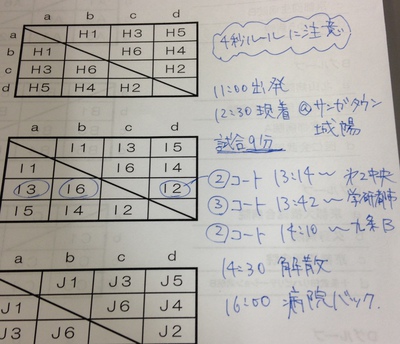 a b c d
a H1 H3 H5
b H1 H6 H4
c H3 H6 H2
d H5 H4 H2
4秒ルールに注意
11:00 出発
12:30 現着 @サンガタウン
城陽
試合9分
a b c d
I1 I3 I5
I1 I6 I4
I3 I6 I2
I5 I4 I2
②コート 13:14〜 第二中央
③コート 13:42〜 学研都市
②コート 14:10〜 九条B
14:30 解散
16:00 病院バック.
a b c d
J1 J3 J5
J1 J6 J4
J3 J6 J2